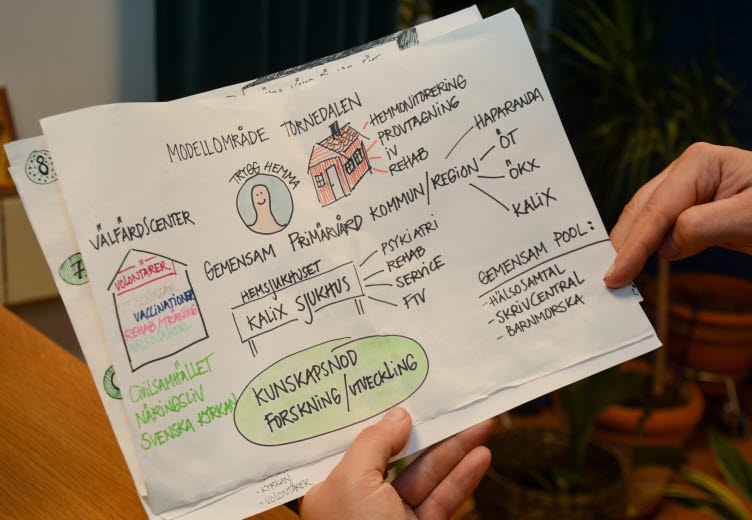 MODELLOMRÅDE TORNEDALEN
TRYGG HEMMA
HEMMONITORERING
PROVTAGNING
IV
REHAB
GEMENSAM PRIMÄRVÅRD KOMMUN/REGION
HAPARANDA
ÖT
ÖKX
KALIX
VÄLFÄRDSCENTER
VOLONTÄRER
VACCINATIONER
REHAB/TRÄNING
HÄLSOSAMTAL
CIVILSAMHÄLLET
NÄRINGSLIV
SVENSKA KYRKAN
HEMSJUKHUSET
KALIX SJUKHUS
PSYKIATRI
REHAB
SERVICE
FTV
GEMENSAM POOL:
-HÄLSOSAMTAL
-SKRIVCENTRAL
-BARNMORSKA
KUNSKAPSNOD
FORSKNING/UTVECKLING
8
7
-KYRKAN
-VOLONTÄRER